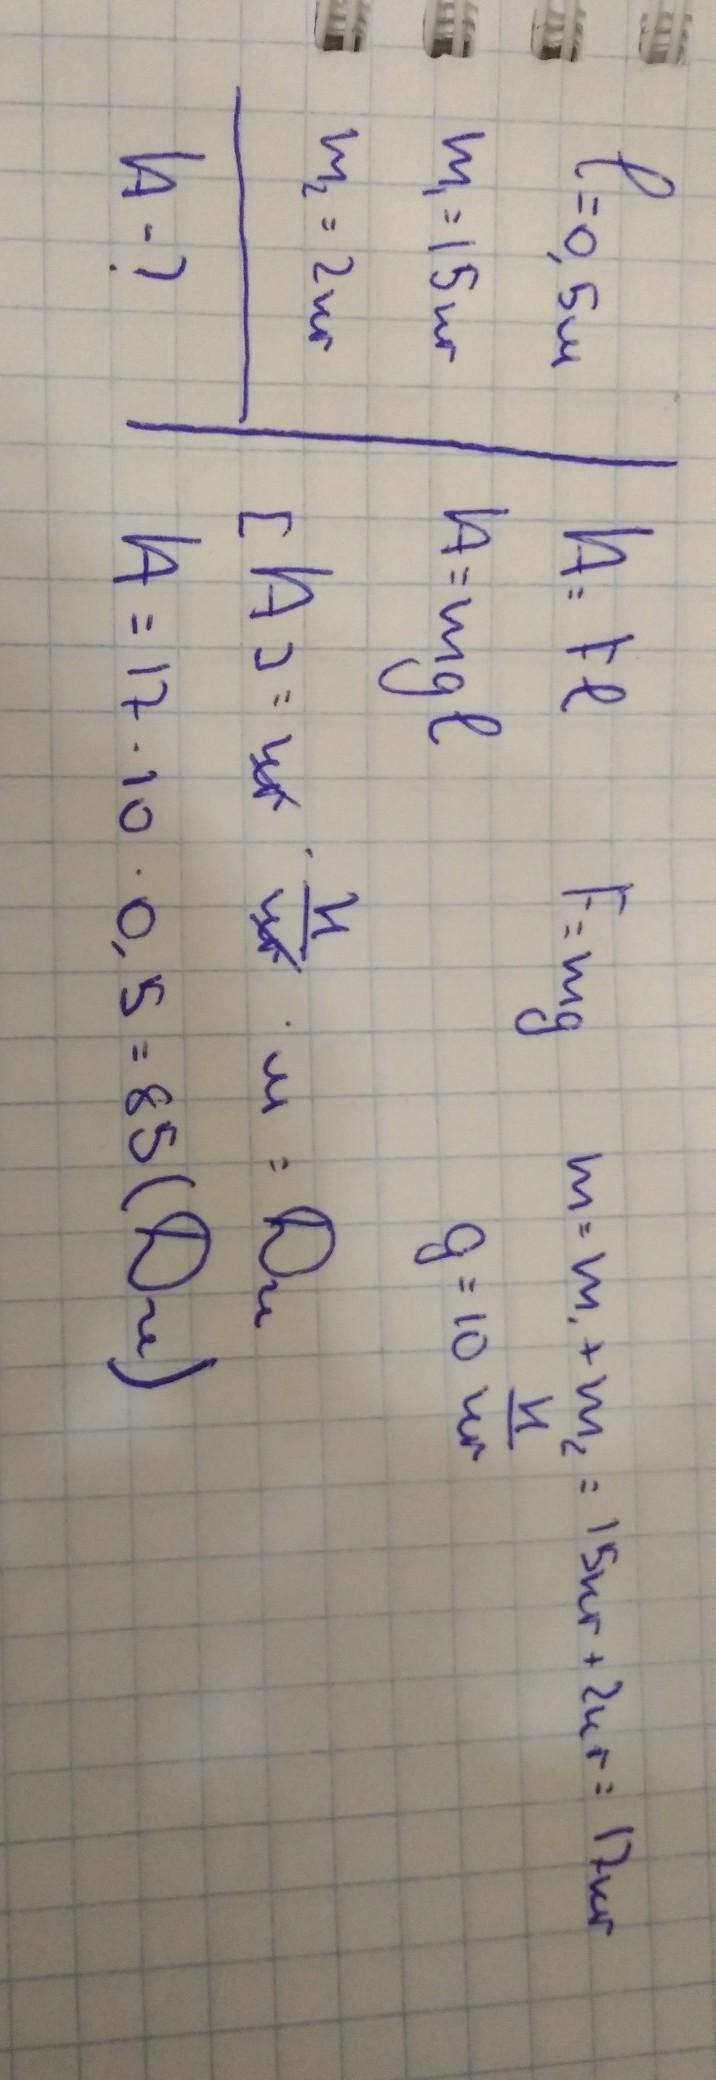 l = 0,5м
m₁ = 15кг
m₂ = 2кг
A - ?
A = Fl F = mg m = m₁ + m₂ = 15кг + 2кг = 17кг
A = mgl g = 10 Н/кг
[A] = кг · Н/кг · м = Дж
A = 17 · 10 · 0,5 = 85 (Дж)